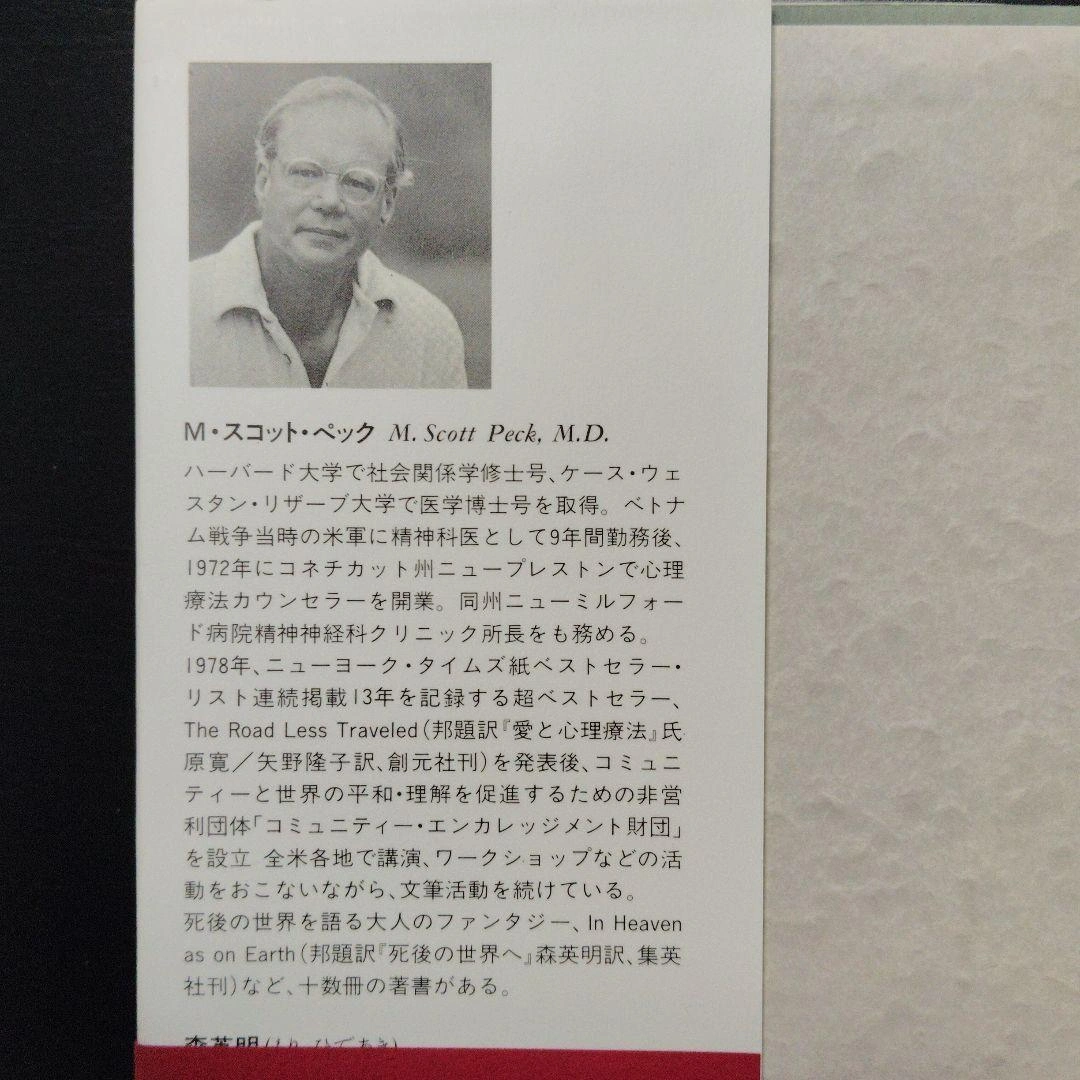 M・スコット・ペック M. Scott Peck, M.D.
ハーバード大学で社会関係学修士号、ケース・ウェ
スタン・リザーブ大学で医学博士号を取得。ベトナ
ム戦争当時の米軍に精神科医として9年間勤務後、
1972年にコネチカット州ニュープレストンで心理
療法カウンセラーを開業。同州ニューミルフォー
ド病院精神神経科クリニック所長をも務める。
1978年、ニューヨーク・タイムズ紙ベストセラー・
リスト連続掲載13年を記録する超ベストセラー、
The Road Less Traveled(邦題訳『愛と心理療法』氏
原寛／矢野隆子訳、創元社刊)を発表後、コミュニ
ティーと世界の平和・理解を促進するための非営
利団体「コミュニティー・エンカレッジメント財団」
を設立 全米各地で講演、ワークショップなどの活
動をおこないながら、文筆活動を続けている。
死後の世界を語る大人のファンタジー、In Heaven
as on Earth(邦題訳『死後の世界へ』森英明訳、集英
社刊)など、十数冊の著書がある。
森英明(もり ひであき)